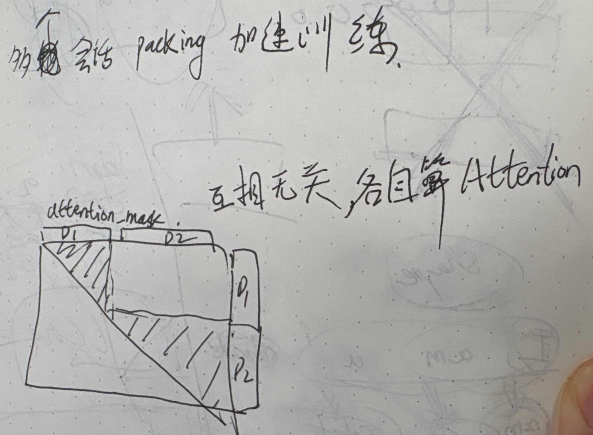 多个会话 packing 加速训练.
互相无关,各自算 Attention
attention_mask.
D1 D2
D1
D2